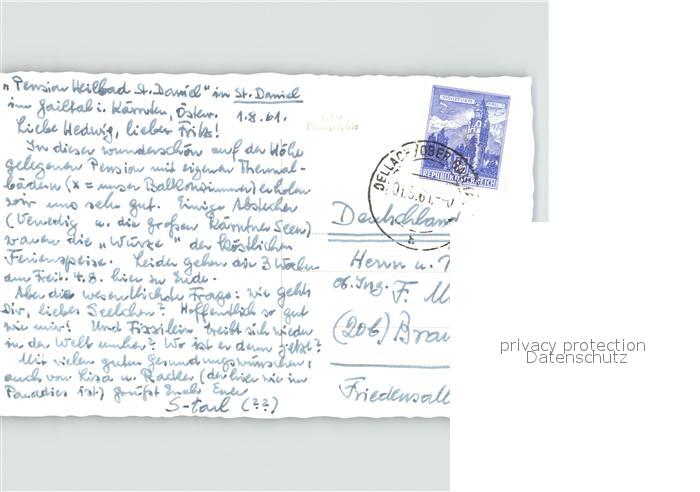 „Pension Heilbad St. Daniel" in St. Daniel
im Gailtal i. Kärnten, Österr. 1.8.61.
Liebe Hedwig, lieber Fritz!
In dieser wunderschön auf der Höhe
gelegenen Pension mit eigenen Thermal-
bädern (x = unser Balkonzimmer) erholen
wir uns sehr gut. Einige Abstecher
(Venedig u. die großen Kärntner Seen)
waren die „Würze" der köstlichen
Ferienspeise. Leider gehen die 3 Wochen
am Freit. 4.8. hier zu Ende.
Aber die wesentlichste Frage: wie gehts
Dir, liebes Seelchen? Hoffentlich so gut
wie mir! Und treibt sich wieder
in der Welt umher? Wo ist er denn jetzt?
Mit vielen guten Gesundungswünschen,
auch von Lisa u. (der hier wie im
Paradies ist) grüßt Euch Euer
(??)
Photographie
REPUBLIK ÖSTERREICH
DELLACH/OBER
Deutschland
Herrn u.
F.
(20b) Brau
privacy protection
Datenschutz